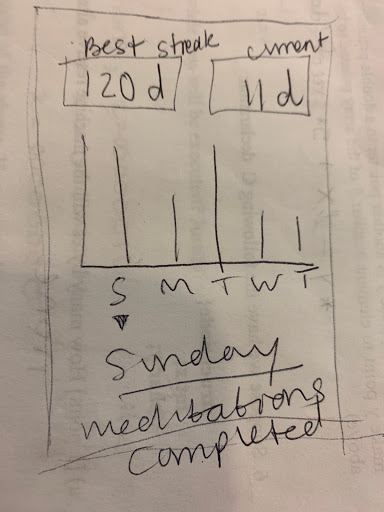 Best streak current
120 d 11 d
S M T W T
Sunday
meditations
completed